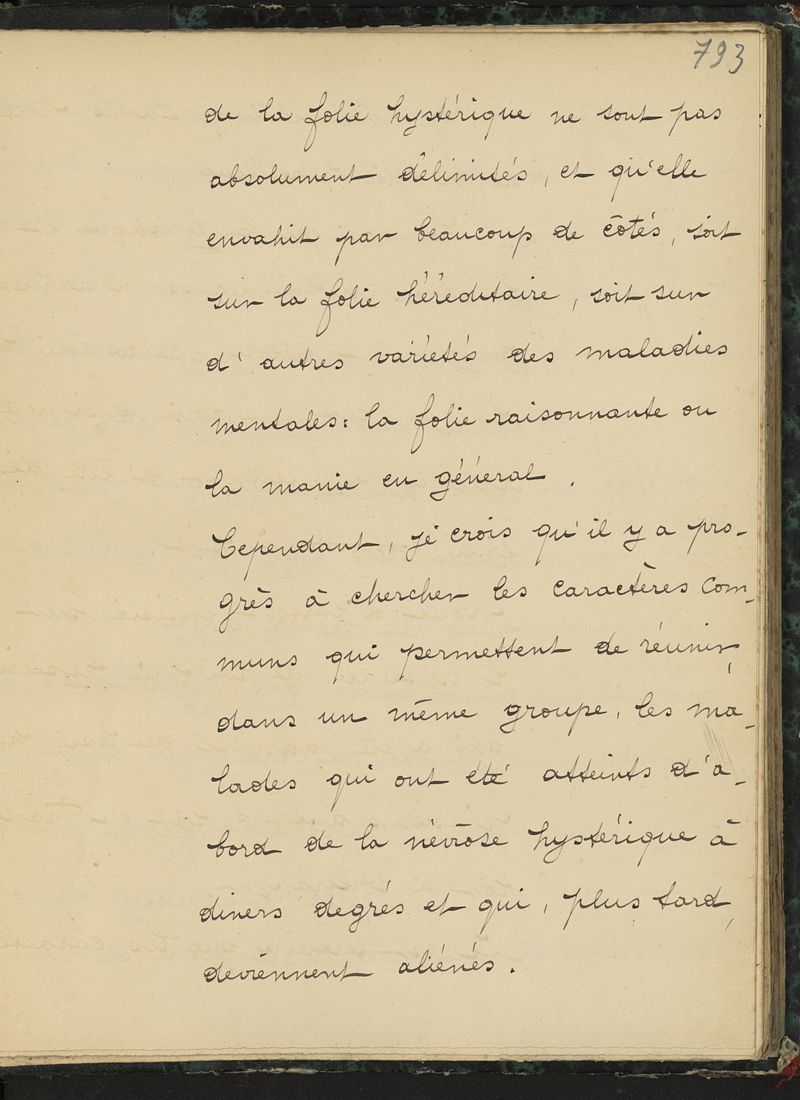 793
de la folie hystérique ne sont pas
absolument délimités, et qu'elle
envahit par beaucoup de côtés, soit
sur la folie héréditaire, soit sur
d'autres variétés des maladies
mentales: la folie raisonnante ou
la manie en général.
Cependant, je crois qu'il y a pro-
grès à chercher les caractères com-
muns qui permettent de réunir,
dans un même groupe, les ma-
lades qui ont été atteints d'a-
bord de la névrose hystérique à
divers degrés et qui, plus tard,
deviennent aliénés.